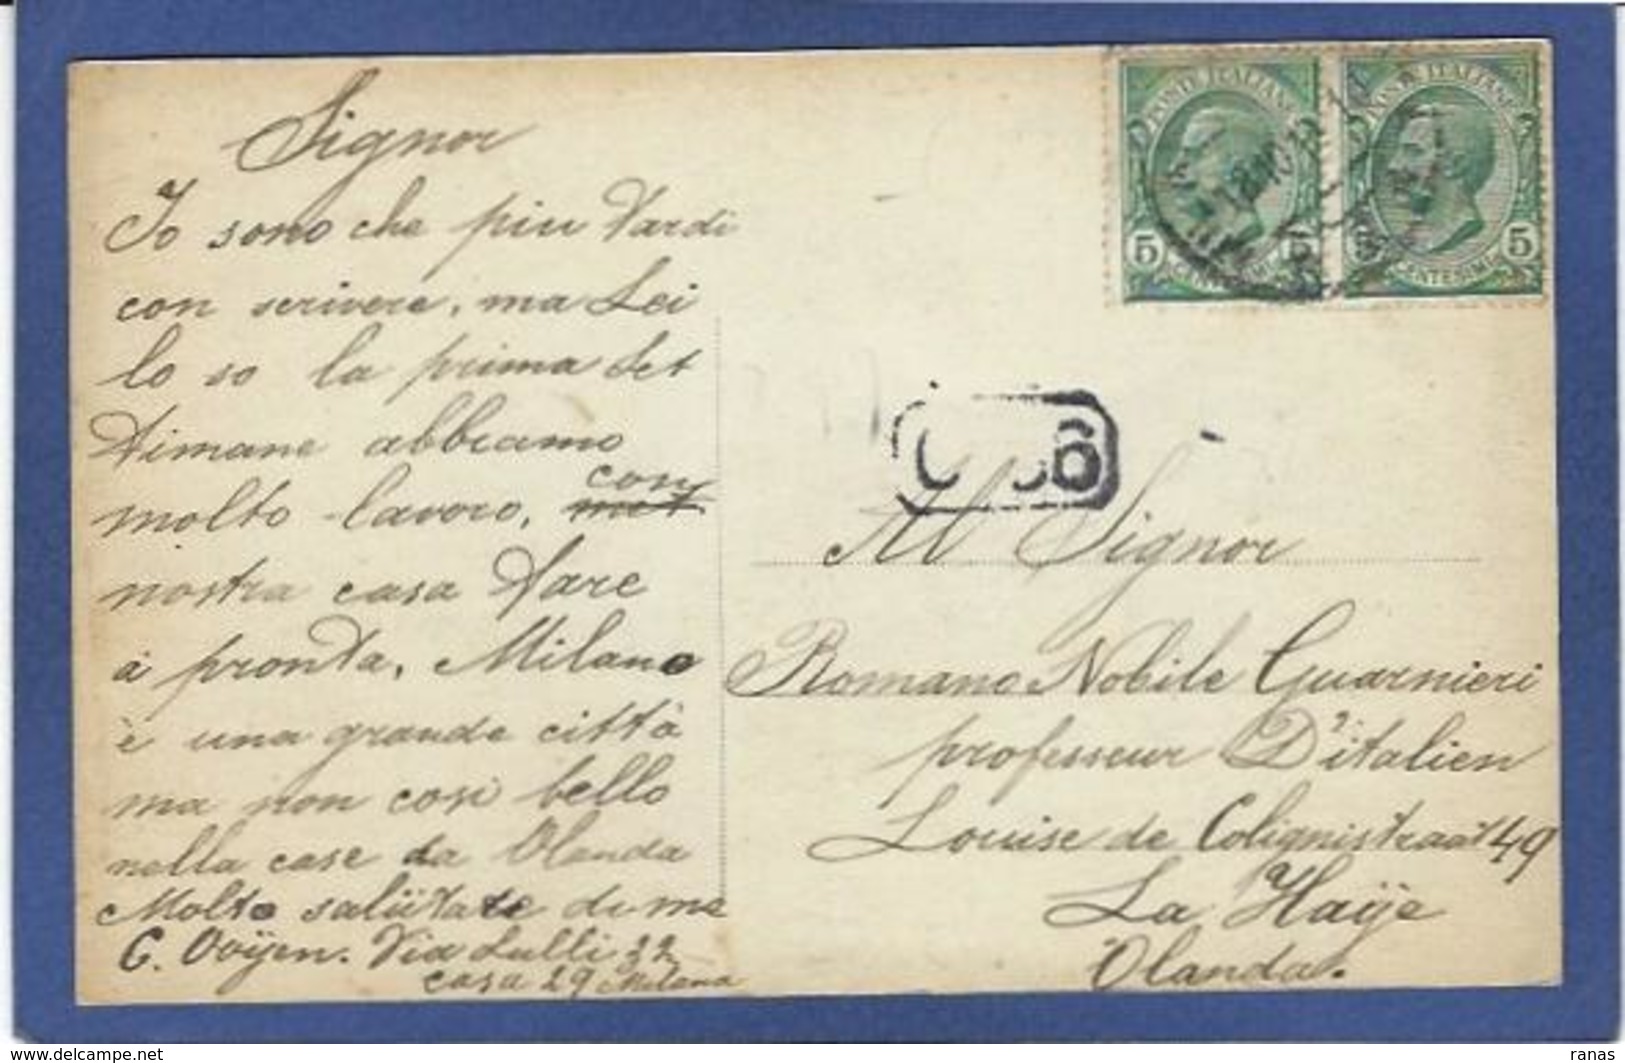 Signor
Io sono che piu Tardi
con scrivere, ma Lei
lo so la prima Set
Timane abbiamo
con
molto lavoro, met
nostra casa Fare
à pronta, Milano
è una grande città
ma non cosi bello
nella case da Olanda
Molto salütate di me
C. Ooÿen. Via Lulli 32
casa 29 Milana
POSTE ITALIANE
5 CENTESIMI 5
POSTE ITALIANE
5 CENTESIMI 5
Al Signor
Romano Nobile Guarnieri
professeur D'italien
Louise de Colignistraat 49
La Haÿe
Olanda.
www.delcampe.net
ranas